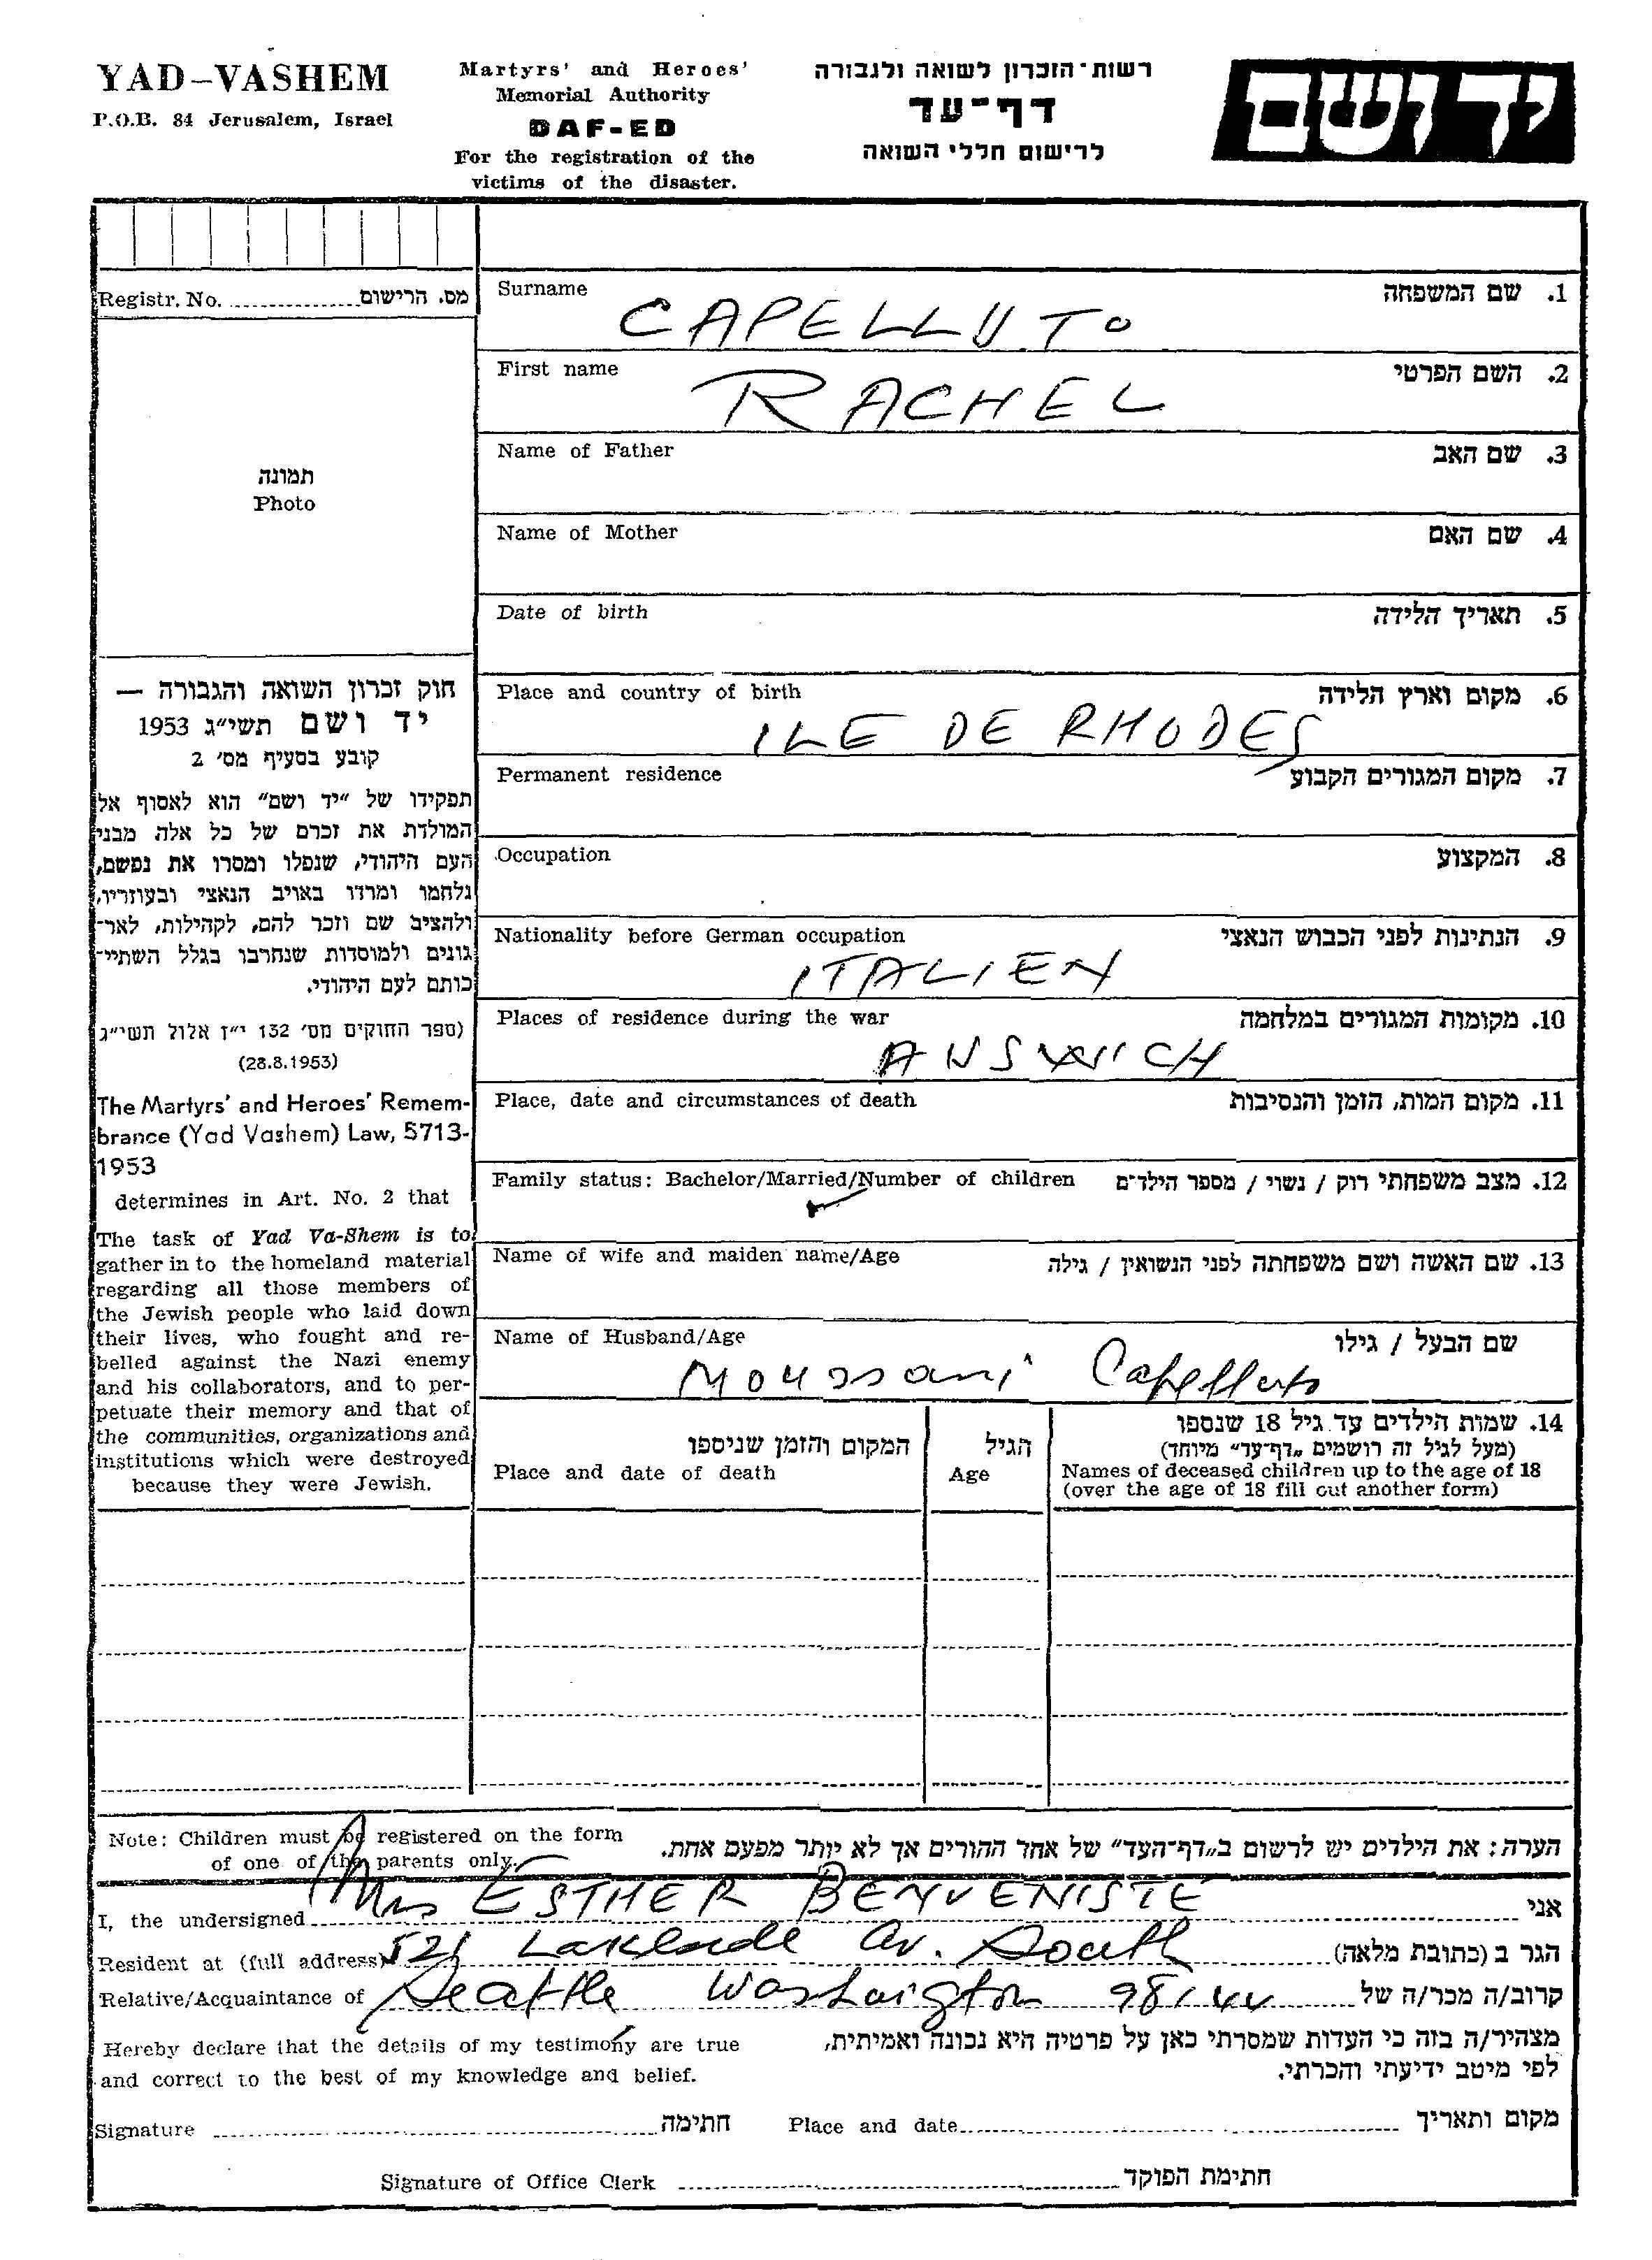 YAD-VASHEM
P.O.B. 84 Jerusalem, Israel
Martyrs' and Heroes'
Memorial Authority
DAF-ED
For the registration of the
victims of the disaster.
רשות-הזכרון לשואה ולגבורה
דף-עד
לרישום חללי השואה
יד ושם
Registr. No. מס. הרישום
תמונה
Photo
חוק זכרון השואה והגבורה —
יד ושם תשי״ג 1953
קובע בסעיף מס׳ 2
תפקידו של "יד ושם" הוא לאסוף אל
המולדת את זכרם של כל אלה מבני
העם היהודי, שנפלו ומסרו את נפשם,
נלחמו ומרדו באויב הנאצי ובעוזריו,
ולהציב שם וזכר להם, לקהילות, לאר-
גונים ולמוסדות שנחרבו בגלל השתיי-
כותם לעם היהודי.
(ספר החוקים מס׳ 132 י״ז אלול תשי״ג
(28.8.1953)
The Martyrs' and Heroes' Remem-
brance (Yad Vashem) Law, 5713-
1953
determines in Art. No. 2 that
The task of Yad Va-Shem is to
gather in to the homeland material
regarding all those members of
the Jewish people who laid down
their lives, who fought and re-
belled against the Nazi enemy
and his collaborators, and to per-
petuate their memory and that of
the communities, organizations and
institutions which were destroyed
because they were Jewish.
Surname 1. שם המשפחה
CAPELLUTO
First name 2. השם הפרטי
RACHEL
Name of Father 3. שם האב
Name of Mother 4. שם האם
Date of birth 5. תאריך הלידה
Place and country of birth 6. מקום וארץ הלידה
ILE DE RHODES
Permanent residence 7. מקום המגורים הקבוע
Occupation 8. המקצוע
Nationality before German occupation 9. הנתינות לפני הכבוש הנאצי
ITALIEN
Places of residence during the war 10. מקומות המגורים במלחמה
AUSWICH
Place, date and circumstances of death 11. מקום המות, הזמן והנסיבות
Family status: Bachelor/Married/Number of children 12. מצב משפחתי רוק / נשוי / מספר הילדים
Name of wife and maiden name/Age 13. שם האשה ושם משפחתה לפני הנשואין / גילה
Name of Husband/Age שם הבעל / גילו
Moussani Capelluto
המקום והזמן שניספו
Place and date of death
הגיל
Age
14. שמות הילדים עד גיל 18 שנספו
(מעל לגיל זה רושמים „דף-עד" מיוחד)
Names of deceased children up to the age of 18
(over the age of 18 fill out another form)
Note: Children must be registered on the form
of one of the parents only.
הערה: את הילדים יש לרשום ב„דף-העד" של אחד ההורים אך לא יותר מפעם אחת.
I, the undersigned Mrs ESTHER BENVENISTE אני
Resident at (full address) 521 Lakeside Av. South הגר ב (כתובת מלאה)
Relative/Acquaintance of Seattle Washington 98144 קרוב/ה מכר/ה של
Hereby declare that the details of my testimony are true
and correct to the best of my knowledge and belief.
מצהיר/ה בזה כי העדות שמסרתי כאן על פרטיה היא נכונה ואמיתית,
לפי מיטב ידיעתי והכרתי.
Signature חתימה Place and date מקום ותאריך
Signature of Office Clerk חתימת הפוקד